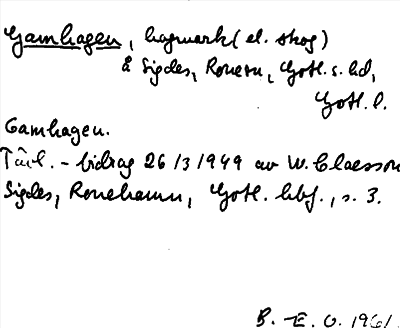 Gamhagen, hagmark (el. skog)
å Sigdes, Ronem, Gotl. s. hd,
Gotl. l.
Gamhagen.
Tävl.-bidrag 26/3 1949 av W. Claesson
Sigdes, Ronehamn, Gotl. hbf., s. 3.
B. E. O. 1961.